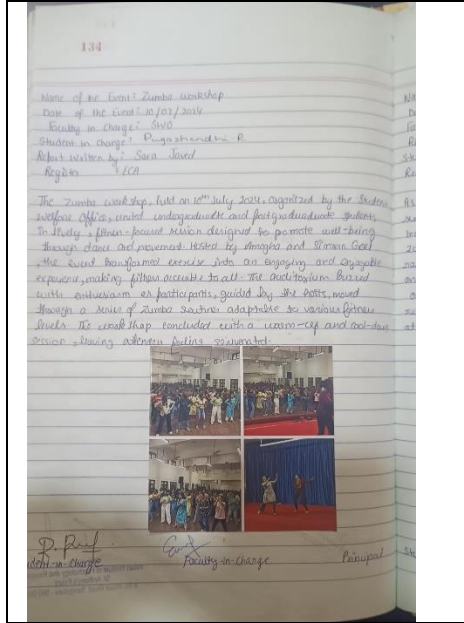 134
Name of the Event: Zumba Workshop
Date of the Event: 10/07/2024
Faculty in Charge: SWO
Student in Charge: Pugazhendhi R
Report written by: Sara Javed
Register : ECA
The Zumba workshop, held on 10th July 2024, organized by the Student
Welfare Office, united undergraduate and postgraduate students,
in lively, fitness-focused session designed to promote well-being
through dance and movement. Hosted by Amogha and Simran Goel
, the event transformed exercise into an engaging and enjoyable
experience, making fitness accessible to all. The auditorium buzzed
with enthusiasm as participants, guided by the hosts, moved
through a series of Zumba routines adaptable to various fitness
levels. The workshop concluded with a warm-up and cool-down
session, leaving attendees feeling rejuvenated.
Student-in-Charge
Faculty-in-Charge
Principal